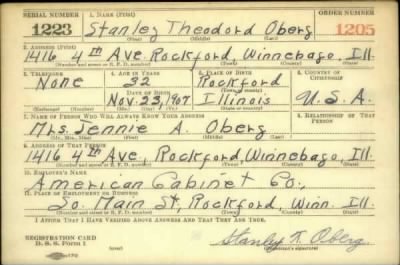 SERIAL NUMBER 1. NAME (Print) ORDER NUMBER
1223 Stanley Theodord Oberg 1205
(First) (Middle) (Last)
2. ADDRESS (Print)
1416 4th Ave Rockford, Winnebago, Ill.
(Number and street or R. F. D. number) (Town) (County) (State)
3. TELEPHONE 4. AGE IN YEARS 5. PLACE OF BIRTH 6. COUNTRY OF CITIZENSHIP
None 32 Rockford
DATE OF BIRTH (Town or county)
Nov. 23, 1907 Illinois U.S.A.
(Exchange) (Number) (Mo.) (Day) (Yr.) (State or country)
7. NAME OF PERSON WHO WILL ALWAYS KNOW YOUR ADDRESS 8. RELATIONSHIP OF THAT PERSON
Mrs. Jennie A. Oberg
(Mr., Mrs., Miss) (First) (Middle) (Last)
9. ADDRESS OF THAT PERSON
1416 4th Ave, Rockford, Winnebago, Ill.
(Number and street or R. F. D. number) (Town) (County) (State)
10. EMPLOYER'S NAME
American Cabinet Co.,
11. PLACE OF EMPLOYMENT OR BUSINESS
So. Main St, Rockford, Winn. Ill.
(Number and street or R. F. D. number) (Town) (County) (State)
I AFFIRM THAT I HAVE VERIFIED ABOVE ANSWERS AND THAT THEY ARE TRUE.
REGISTRATION CARD
D. S. S. Form 1 Stanley T. Oberg
(Registrant's signature)